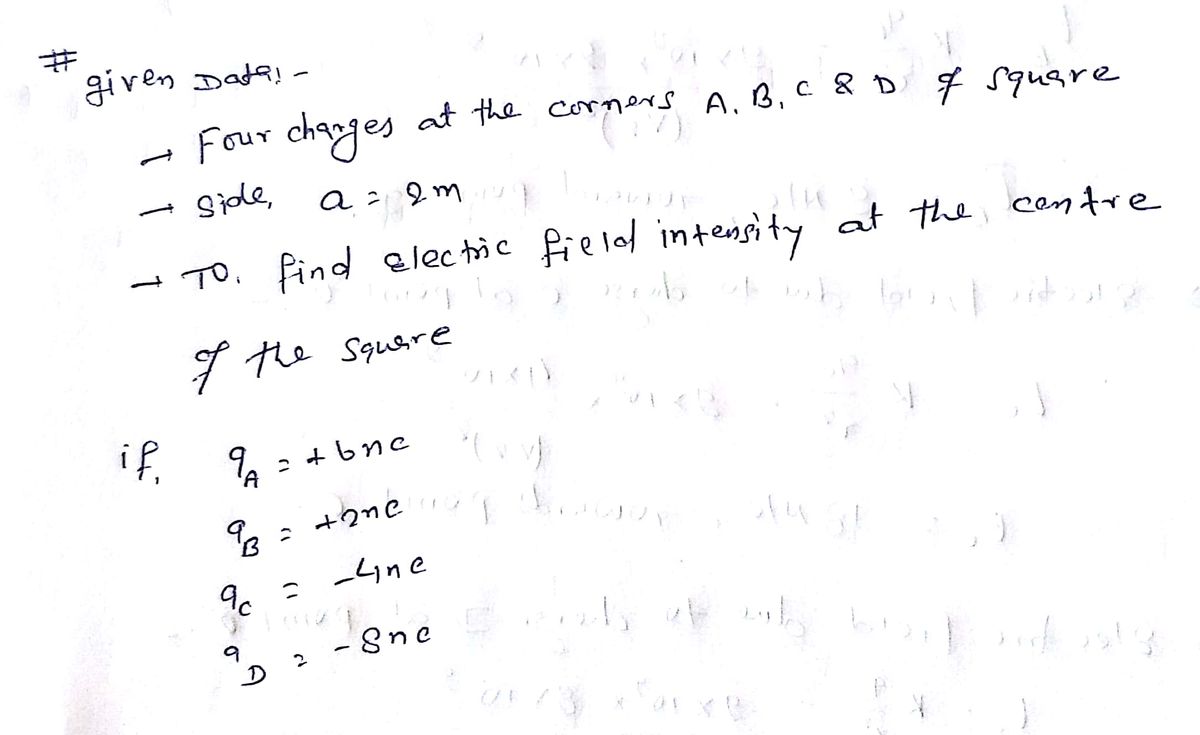 # given Data: -
→ Four charges at the corners A, B, C & D of square
→ Side, a = 2m
→ To. find electric field intensity at the centre
of the square
if, qA = +6nc
qB = +2nc
qc = -4nc
qD = -8nc